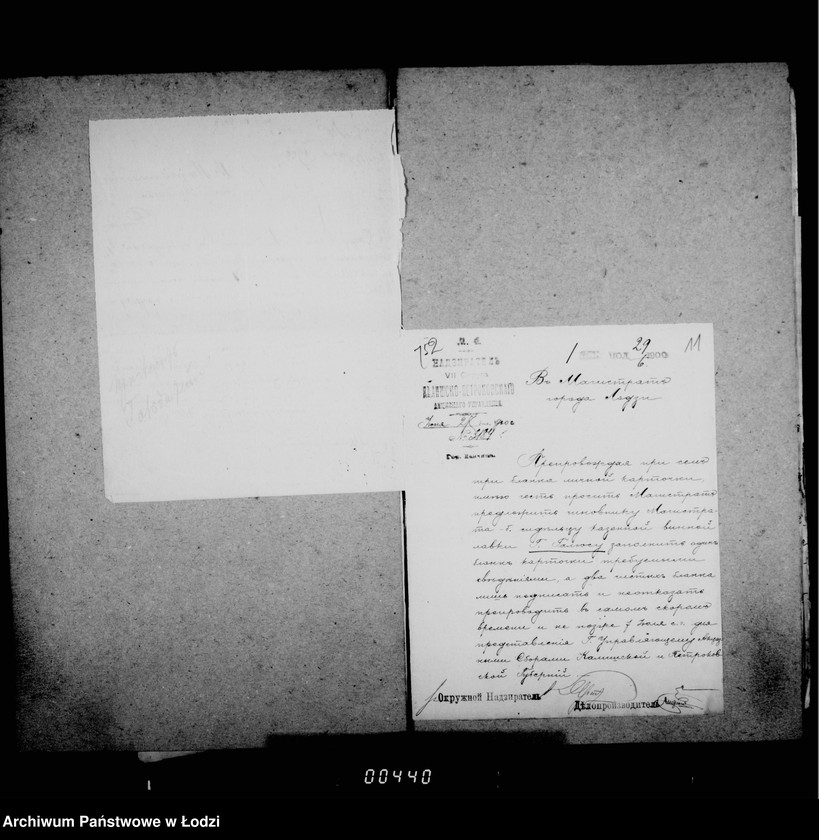 752
М. Ф.
НАДЗИРАТЕЛЬ
VII Округа
АКЦИЗНАГО УПРАВЛЕНІЯ
Іюня 28 дня 1900 г.
№ 504
1 29/6 1900
11
Въ Магистратъ
города Лодзи
Препровождая при семъ
три бланка личной карточки,
имѣю честь просить Магистратъ
предложить чиновнику Магистра-
та б. сидѣльцу казенной винной
лавки Г. заполнить одинъ
бланкъ карточки требуемыми
свѣдѣніями, а два чистыхъ бланка
лишь подписать и неотказать
препроводить въ самомъ скоромъ
времени и не позже 7 Іюля с.г. для
представленія Г. Управляющему Акциз-
ными Сборами Калишской и Петроков-
ской Губерній
Окружной Надзиратель
Дѣлопроизводитель
00440
Archiwum Państwowe w Łodzi